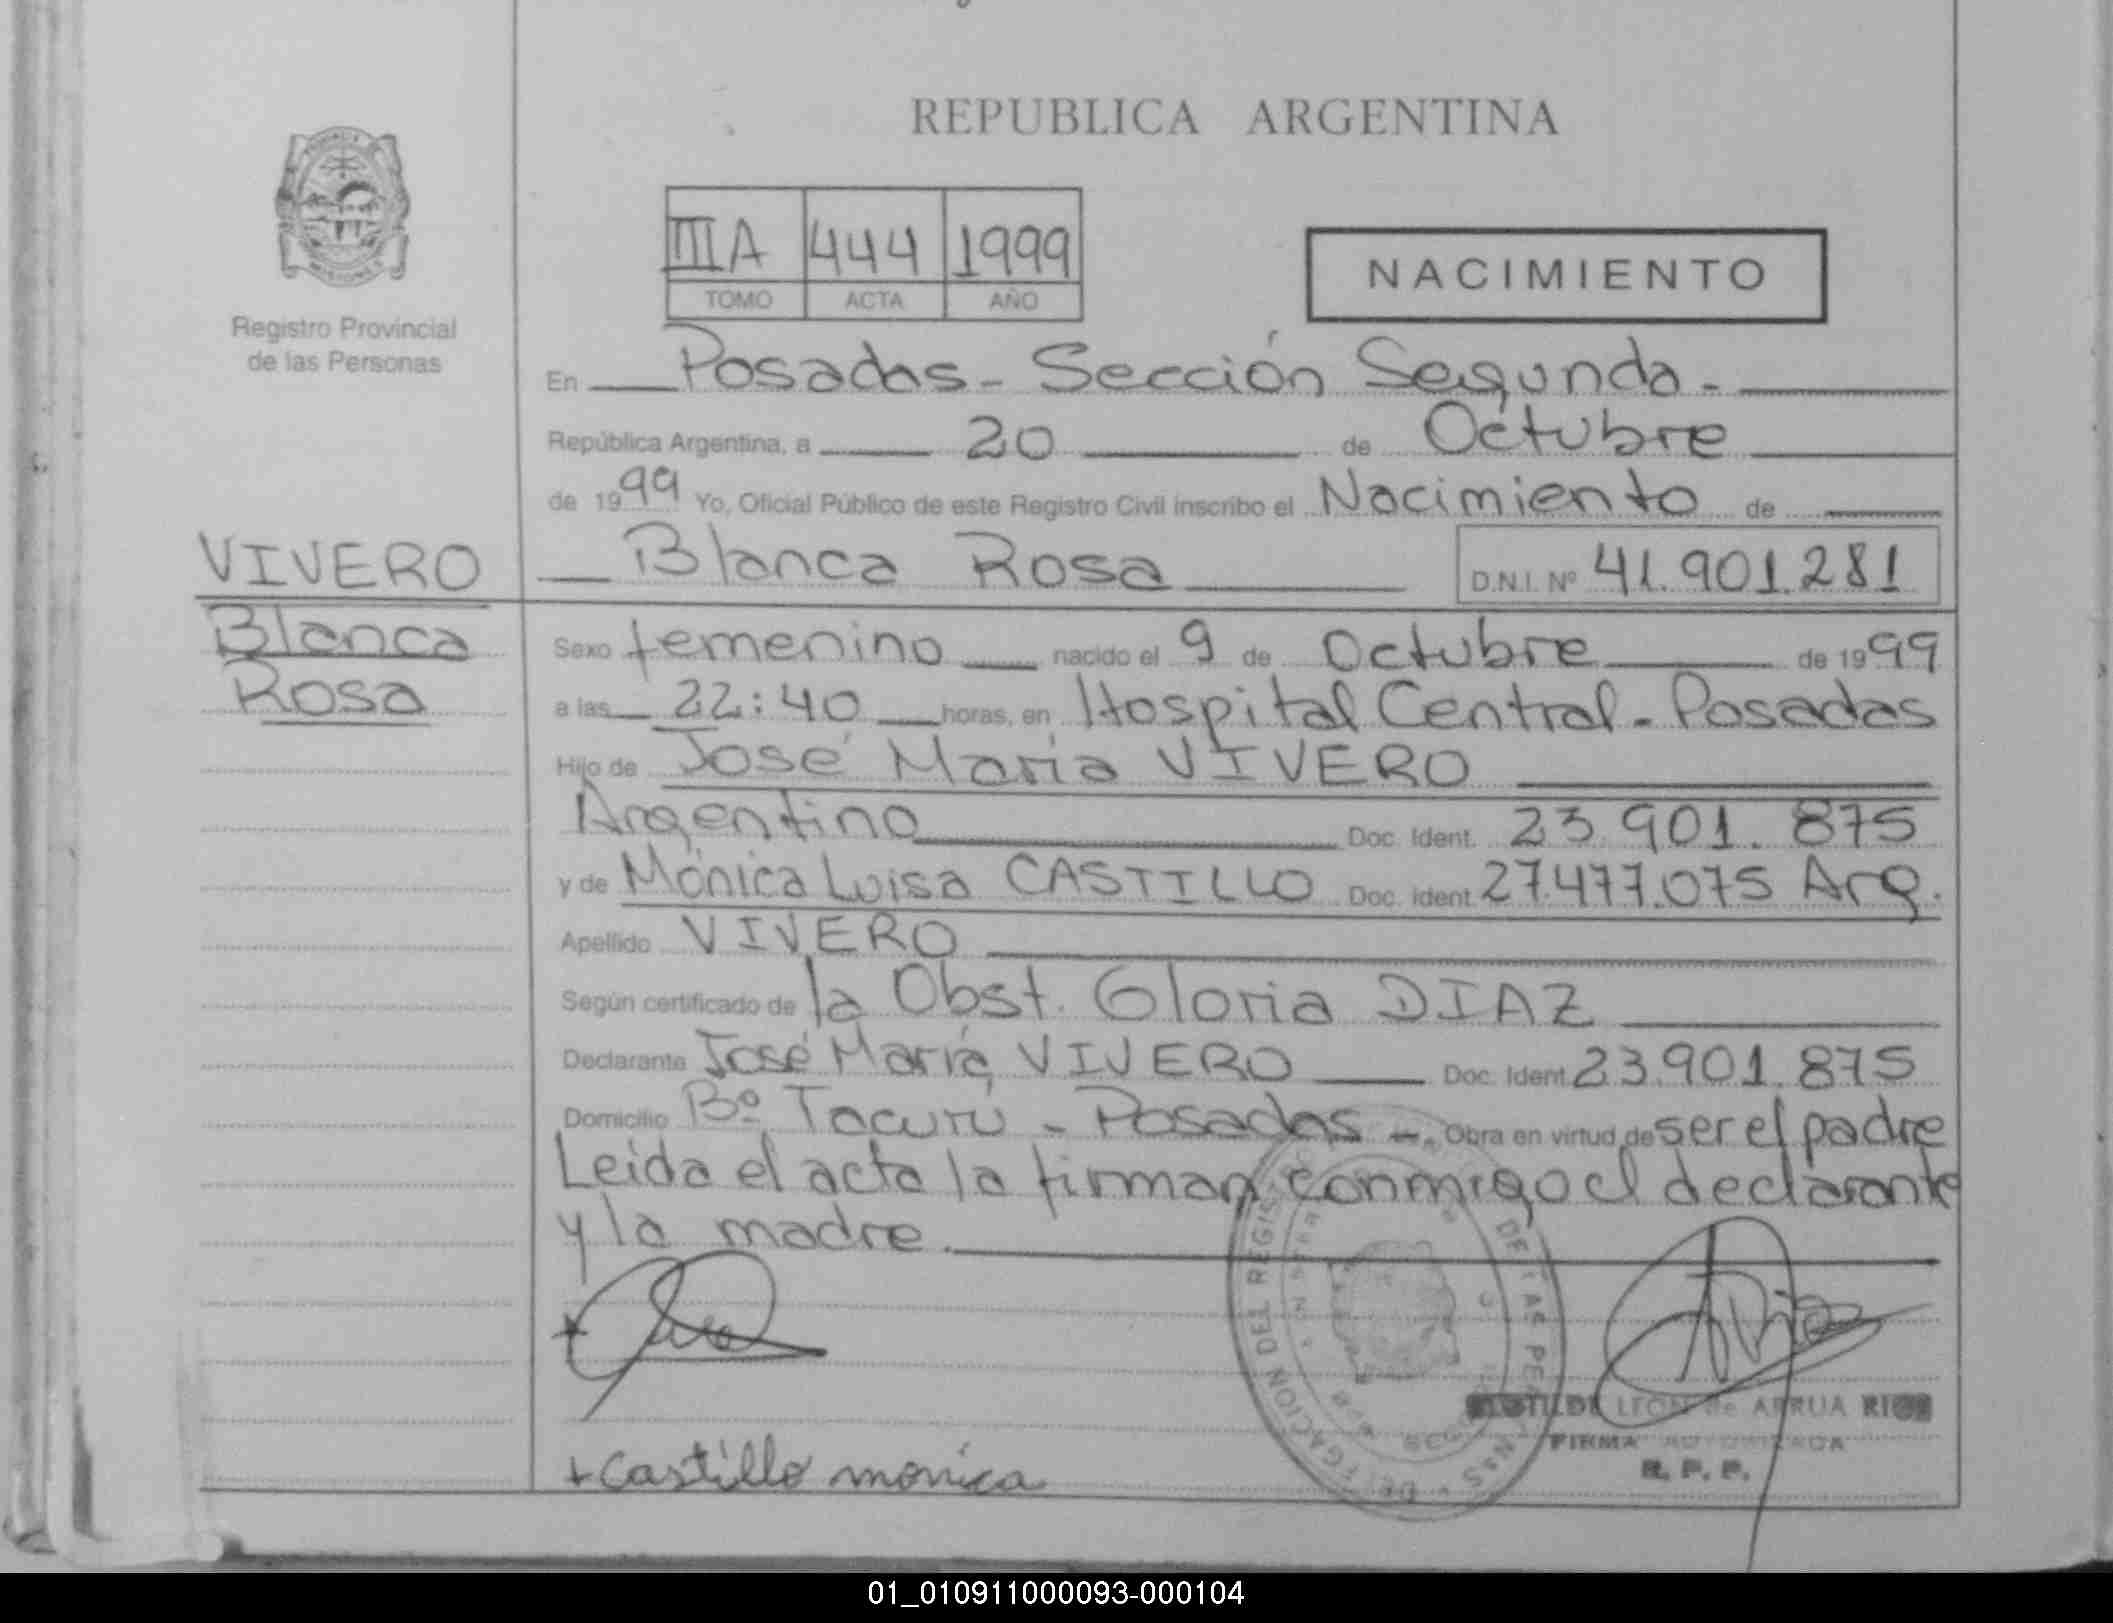 REPUBLICA ARGENTINA
IIIA 444 1999
TOMO ACTA AÑO
NACIMIENTO
Registro Provincial
de las Personas
En Posadas - Sección Segunda -
República Argentina, a 20 de Octubre
de 1999 Yo, Oficial Público de este Registro Civil inscribo el Nacimiento de
VIVERO
Blanca
Rosa
Blanca Rosa D.N.I. Nº 41.901.281
Sexo femenino nacido el 9 de Octubre de 1999
a las 22:40 horas, en Hospital Central - Posadas
Hijo de José Maria VIVERO
Argentino Doc. Ident. 23.901.875
y de Mónica Luisa CASTILLO Doc. Ident. 27.477.075 Arg.
Apellido VIVERO
Según certificado de la Obst. Gloria DIAZ
Declarante José María VIVERO Doc. Ident. 23.901.875
Domicilio Bº Tacurú - Posadas -. Obra en virtud de ser el padre
Leida el acta la firman conmigo el declarante
y la madre.
LEON de ARRUA RIOS
FIRMA AUTORIZADA
R. P. P.
+ Castillo monica
01_010911000093-000104